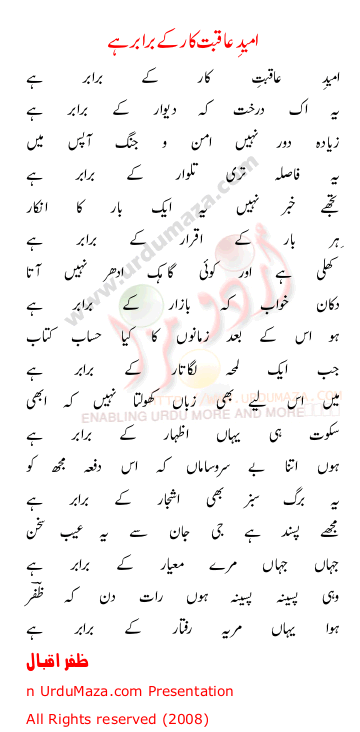 امیدِ عاقبت کار کے برابر ہے
امیدِ عاقبتِ کار کے برابر ہے
یہ اک درخت کہ دیوار کے برابر ہے
زیادہ دور نہیں امن و جنگ آپس میں
یہ فاصلہ تری تلوار کے برابر ہے
تجھے خبر نہیں یہ ایک بار کا انکار
ہر بار کے اقرار کے برابر ہے
کھلی ہے اور کوئی گاہک ادھر نہیں آتا
دکانِ خواب کہ بازار کے برابر ہے
ہو اس کے بعد زمانوں کا کیا حساب کتاب
جب ایک لمحہ لگاتار کے برابر ہے
میں اس لیے بھی زباں کھولتا نہیں کہ ابھی
سکوت ہی یہاں اظہار کے برابر ہے
ہوں اتنا بے سروساماں کہ اس دفعہ مجھ کو
یہ برگ سبز بھی اشجار کے برابر ہے
مجھے پسند ہے جی جان سے یہ عیب سخن
جہاں جہاں مرے معیار کے برابر ہے
وہی پسینہ پسینہ ہوں رات دن کہ ظفرؔ
ہوا یہاں مریہ رفتار کے برابر ہے
ظفر اقبال
n UrduMaza.com Presentation
All Rights reserved (2008)
www.urdumaza.com
اردو مزا
HTTP://WWW.URDUMAZA.COM
ENABLING URDU MORE AND MORE